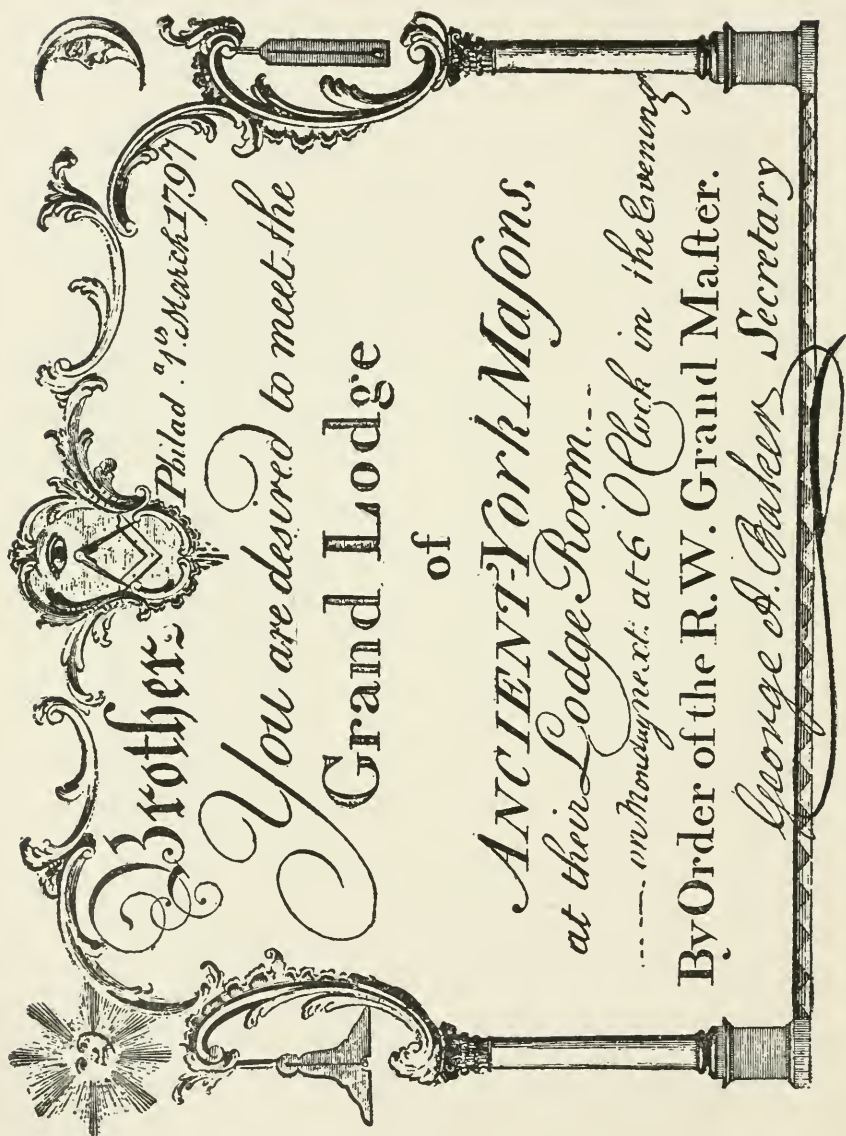 Brother
Philad.ᵃ 1ˢᵗ March 1797
You are desired to meet the
Grand Lodge
of
ANCIENT-York Maſons,
at their Lodge Room....
..... on Monday next: at 6 O Clock in the Evening
By Order of the R.W. Grand Maſter.
George A. Baker Secretary